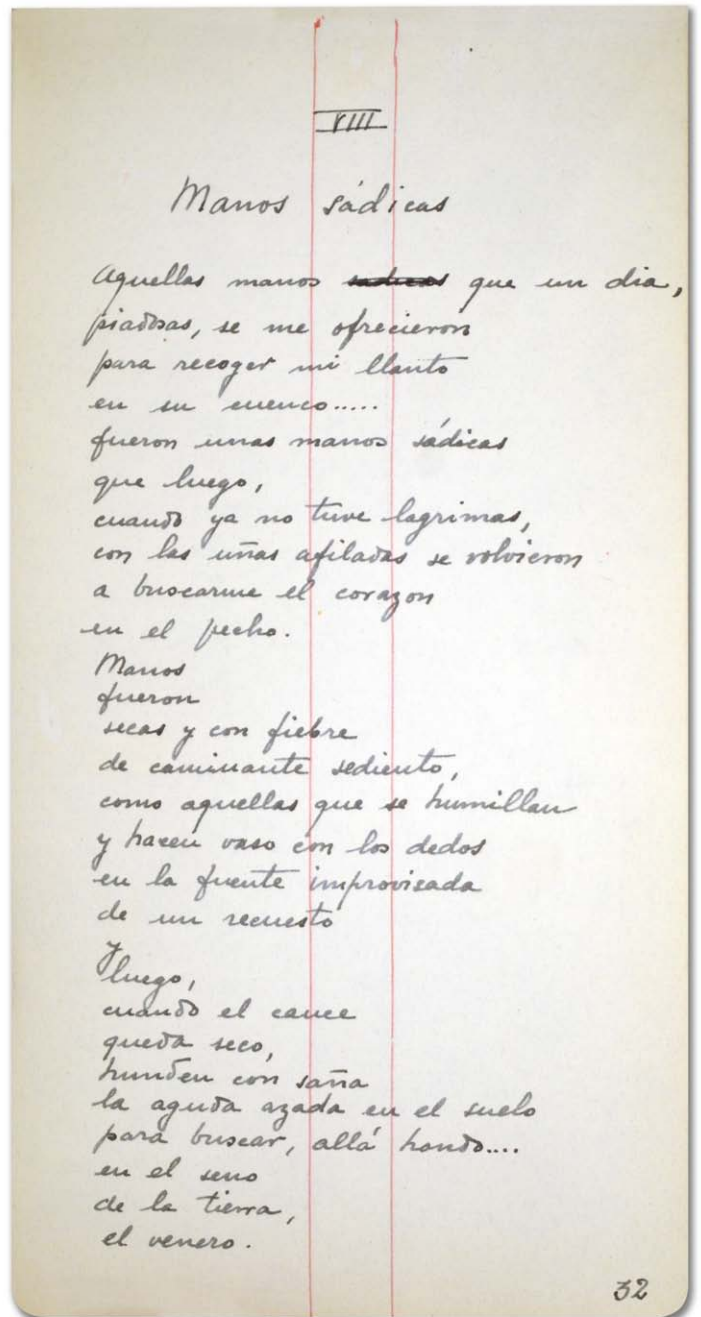 VIII
Manos sádicas
Aquellas manos sadicas que un dia,
piadosas, se me ofrecieron
para recoger mi llanto
en su cuenco.....
fueron unas manos sádicas
que luego,
cuando ya no tuve lagrimas,
con las uñas afiladas se volvieron
a buscarme el corazon
en el pecho.
Manos
fueron
secas y con fiebre
de caminante sediento,
como aquellas que se humillan
y hacen vaso con los dedos
en la fuente improvisada
de un recuesto
y
luego,
cuando el cauce
queda seco,
hunden con saña
la aguda azada en el suelo
para buscar, allá hondo....
en el seno
de la tierra,
el venero.
32